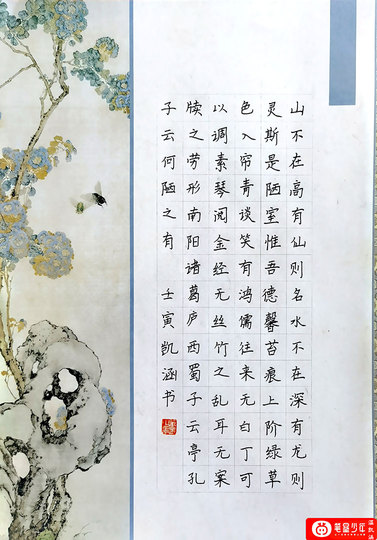 山不在高有仙则名水不在深有龙则
灵斯是陋室惟吾德馨苔痕上阶绿草
色入帘青谈笑有鸿儒往来无白丁可
以调素琴阅金经无丝竹之乱耳无案
牍之劳形南阳诸葛庐西蜀子云亭孔
子云何陋之有 壬寅凯涵书
少年